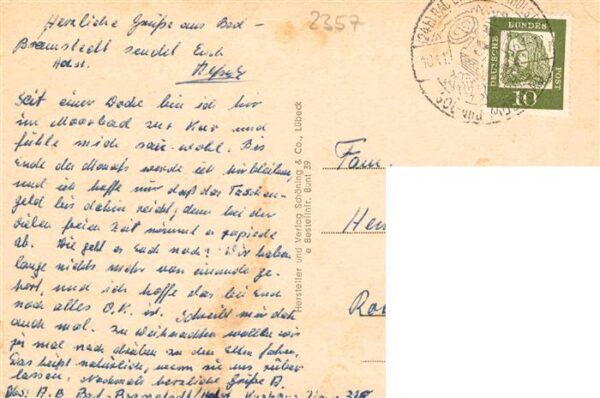 Herzliche Grüße aus Bad-
Bramstedt sendet Euch
Holst.
2357
DEUTSCHE BUNDESPOST
10
Seit einer Woche bin ich hir
im Moorbad zur Kur und
fühle mich sau-wohl. Bis
Ende des Monats werde ich hirbleiben
und ich hoffe nur daß das Taschen-
geld bis dahin reicht; denn bei der
vielen freien Zeit nimmt es rapiede
ab. Wie geht es Euch noch? Wir haben
lange nichts mehr von einander ge-
hört, und ich hoffe das bei Euch
noch alles O.K. ist. Schreibt mir doch
auch mal. Zu Weihnachten wollen wir
ja mal nach drüben zu den alten fahren,
Das heißt natürlich, wenn sie uns rüber
lassen. Nochmals herzliche Grüße
Abs: A.B. Bad-Bramstedt/Holst. Kurhaus
Hersteller und Verlag Schöning & Co., Lübeck
Bestellnr. Bunt 39
Fam.